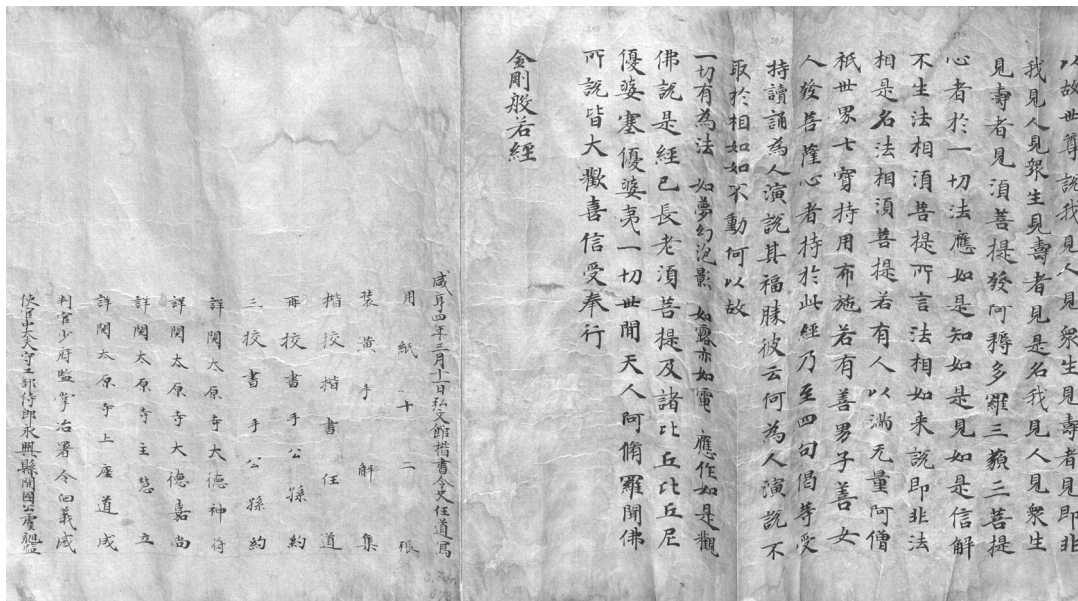 以故世尊說我見人見衆生見壽者見即非
我見人見衆生見壽者見是名我見人見衆生
見壽者見湏菩提發阿耨多羅三藐三菩提
心者於一切法應如是知如是見如是信解
不生法相湏菩提所言法相如来說即非法
相是名法相湏菩提若有人以滿无量阿僧
祇世界七寶持用布施若有善男子善女
人發菩薩心者持於此經乃至四句偈等受
持讀誦為人演說其福勝彼云何為人演說不
取於相如如不動何以故
一切有為法 如夢幻泡影 如露亦如電 應作如是觀
佛說是經已長老湏菩提及諸比丘比丘尼
優婆塞優婆夷一切世間天人阿脩羅聞佛
所說皆大歡喜信受奉行
金剛般若經
咸亨四年三月十一日弘文館楷書令史任道寫
用紙十二張
装潢手解集
楷挍楷書任道
再挍書手公孫約
三挍書手公孫約
詳閱太原寺大德神符
詳閱太原寺大德嘉尚
詳閱太原寺主慧立
詳閱太原寺上座道成
判官少府監掌冶署令向義感
使官中大夫守工部侍郎永興縣開國公虞昶監